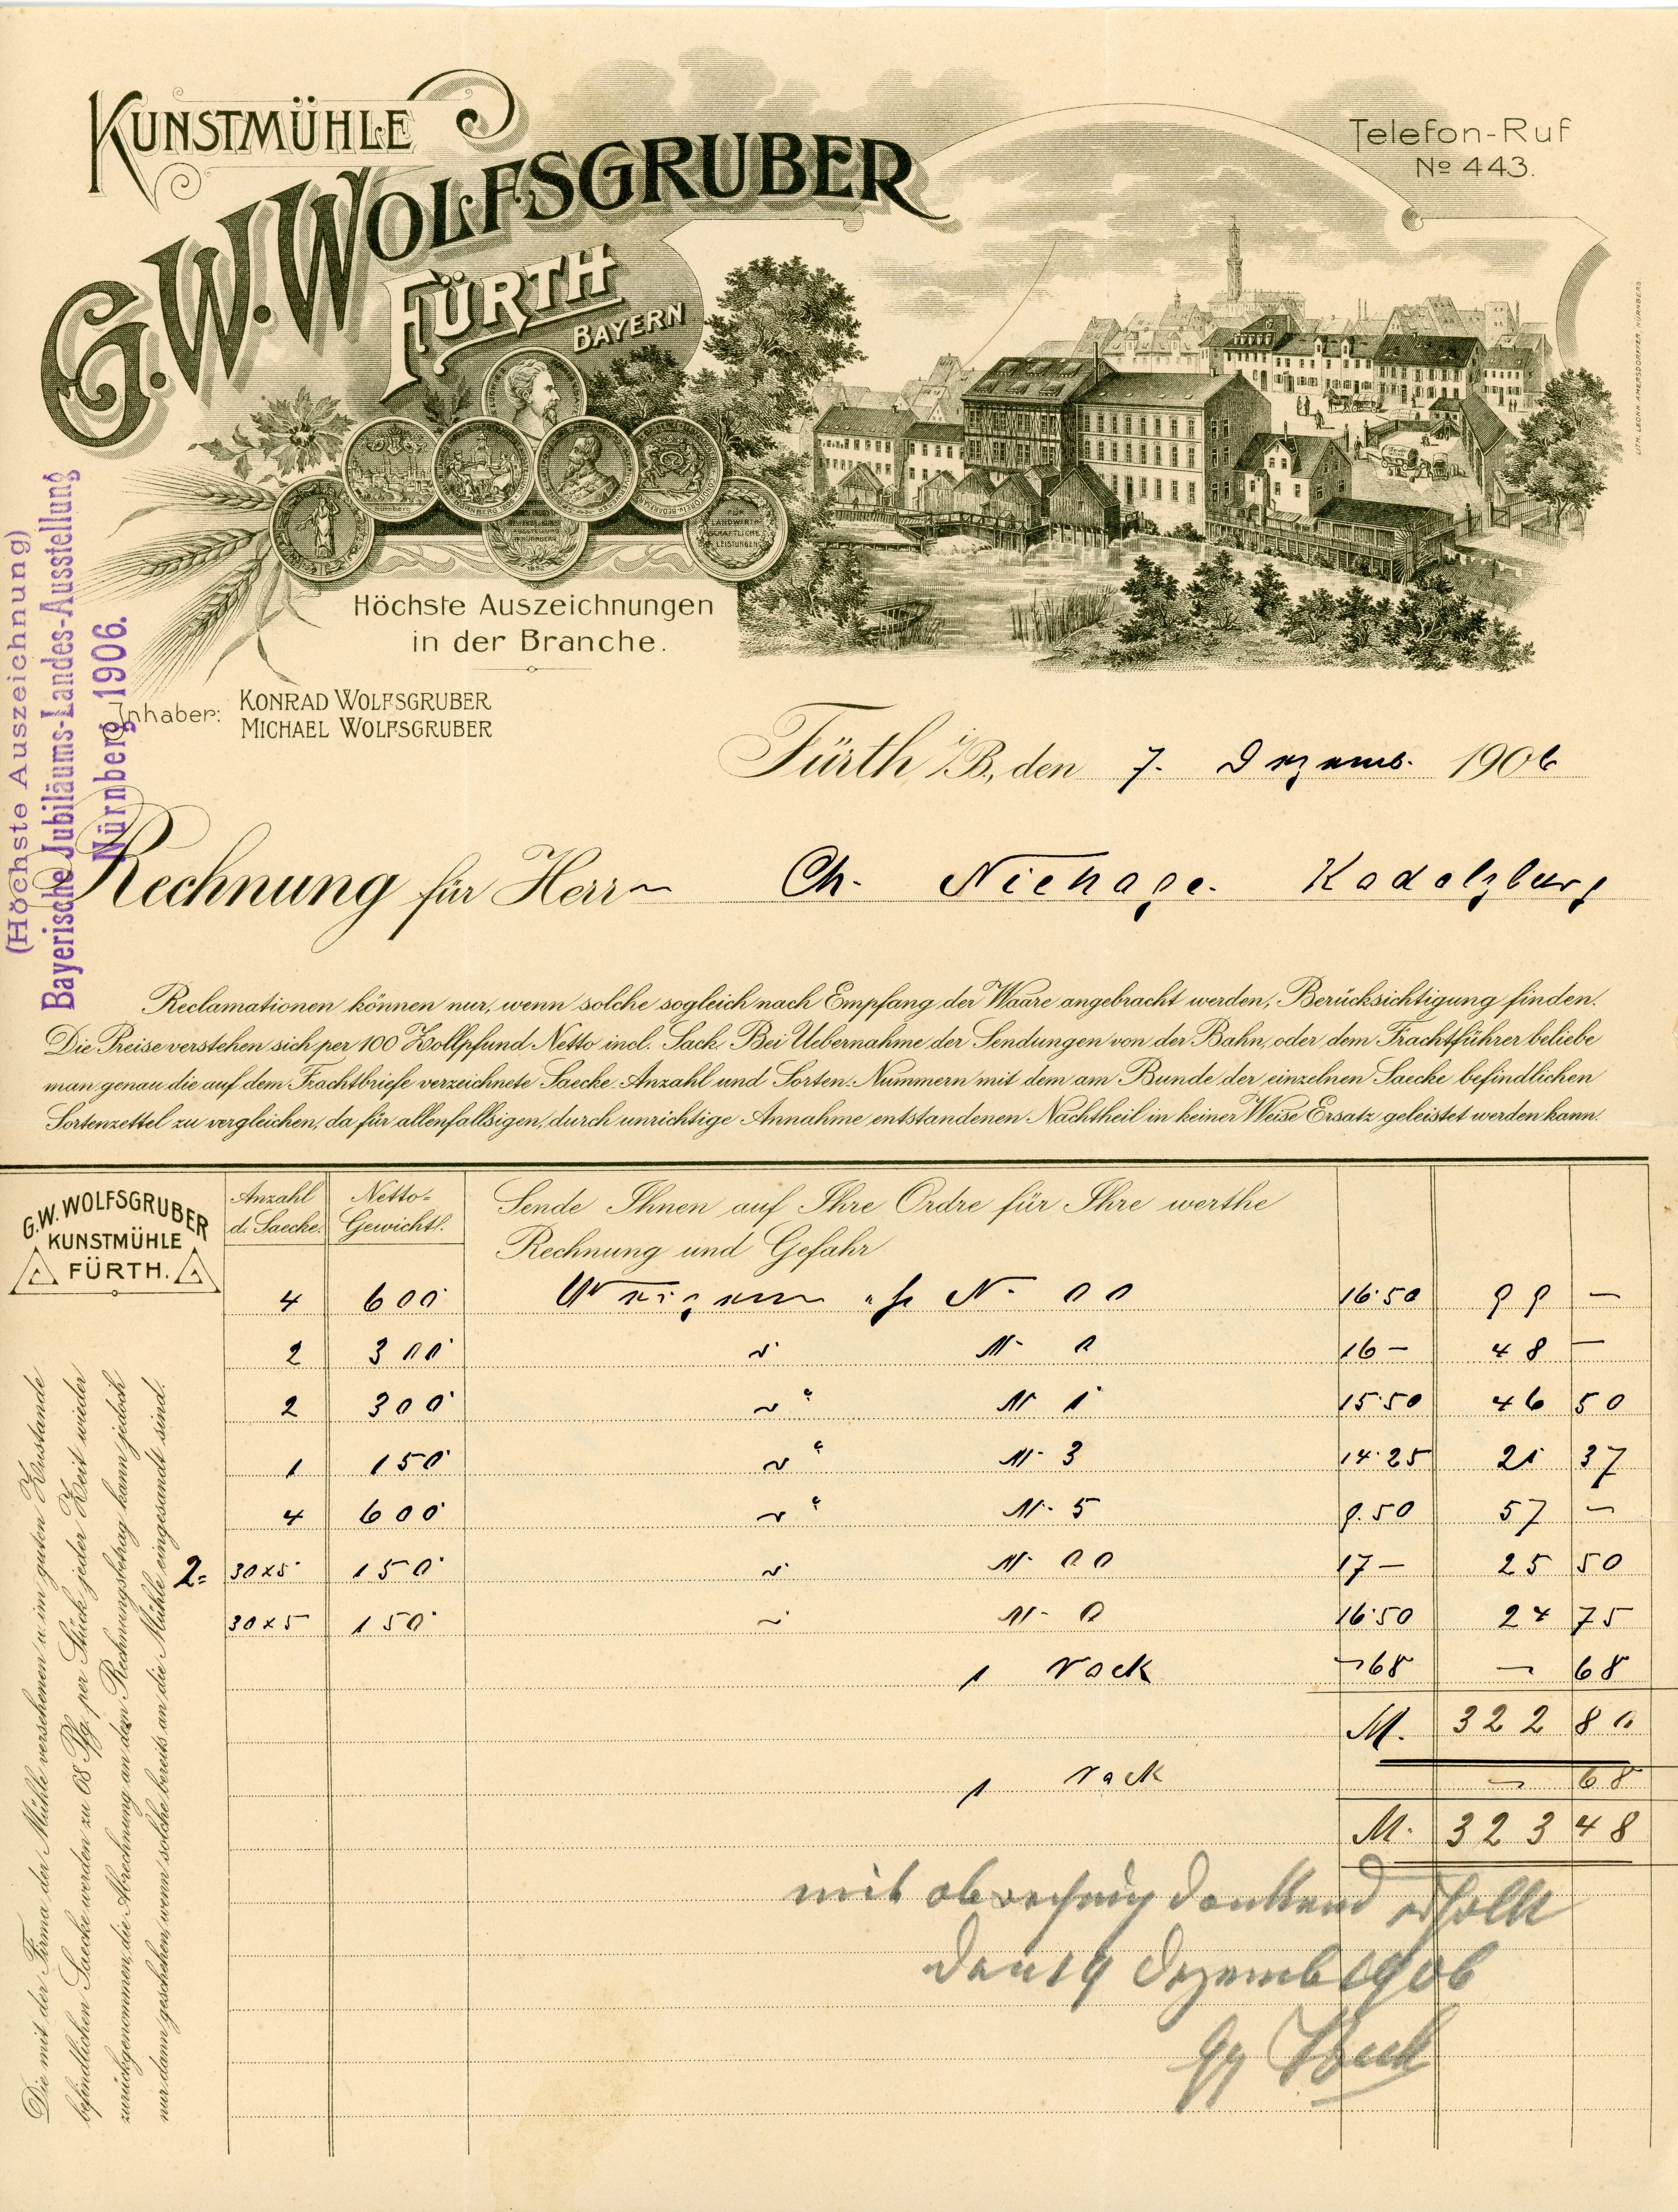 KUNSTMÜHLE
G.W. WOLFSGRUBER
FÜRTH
BAYERN
Telefon-Ruf
No 443.
Höchste Auszeichnungen
in der Branche.
FÜR
LANDWIRT
SCHAFTLICHE
LEISTUNGEN
LITH. LEONH. AMERSDORFFER NÜRNBERG.
(Höchste Auszeichnung)
Bayerische Jubiläums-Landes-Ausstellung
Nürnberg 1906.
Inhaber: KONRAD WOLFSGRUBER
MICHAEL WOLFSGRUBER
Fürth i/B., den 7. Dezemb. 1906
Rechnung für Herrn Ch. Niehage. Kadolzburg
Reclamationen können nur, wenn solche sogleich nach Empfang der Waare angebracht werden, Berücksichtigung finden.
Die Preise verstehen sich per 100 Zollpfund Netto incl. Sack. Bei Uebernahme der Sendungen von der Bahn, oder dem Frachtführer beliebe
man genau die auf dem Frachtbriefe verzeichnete Saecke-Anzahl und Sorten-Nummern mit dem am Bunde der einzelnen Saecke befindlichen
Sortenzettel zu vergleichen, da für allenfallsigen, durch unrichtige Annahme entstandenen Nachtheil in keiner Weise Ersatz geleistet werden kann.
G.W. WOLFSGRUBER
KUNSTMÜHLE
FÜRTH.
Anzahl d. Saecke. Netto-Gewicht. Sende Ihnen auf Ihre Ordre für Ihre werthe
Rechnung und Gefahr
4 600 Weizen N. 00 16.50 99 —
2 300 " N. 0 16 — 48 —
2 300 " N 1 15.50 46 50
1 150 " N. 3 14.25 21 37
4 600 " N. 5 9.50 57 —
2= 30x5 150 " N. 00 17 — 25 50
30x5 150 " N. 0 16.50 24 75
1 Sack — 68 — 68
M. 322 80
1 Sack — 68
M. 323 48
mit abrechnung dankend erhallt
den 19 Dezemb 1906
Die mit der Firma der Mühle versehenen u. im guten Zustande
befindlichen Saecke werden zu 68 Pfg. per Stück jeder Zeit wieder
zurückgenommen, die Abrechnung an dem Rechnungsbetrag kann jedoch
nur dann geschehen, wenn solche bereits an die Mühle eingesandt sind.